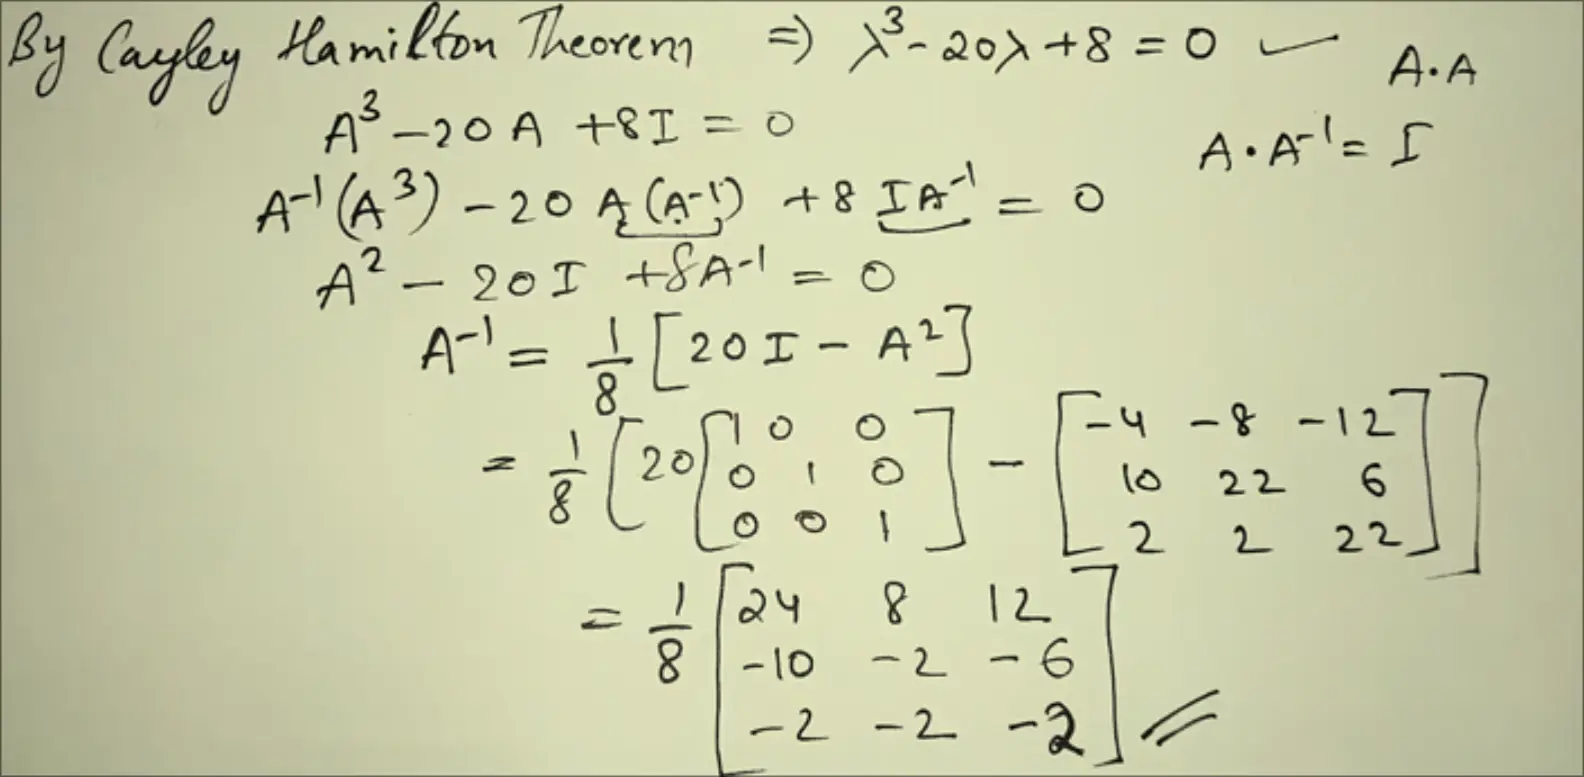 By Cayley Hamilton Theorem ⇒ λ³ - 20λ + 8 = 0 ✓
A·A
A³ - 20A + 8I = 0
A·A⁻¹ = I
A⁻¹(A³) - 20 A(A⁻¹) + 8 IA⁻¹ = 0
A² - 20I + 8A⁻¹ = 0
A⁻¹ = 1/8 [20I - A²]
= 1/8 [20 [1 0 0
0 1 0
0 0 1] - [-4 -8 -12
10 22 6
2 2 22]]
= 1/8 [24 8 12
-10 -2 -6
-2 -2 -2]